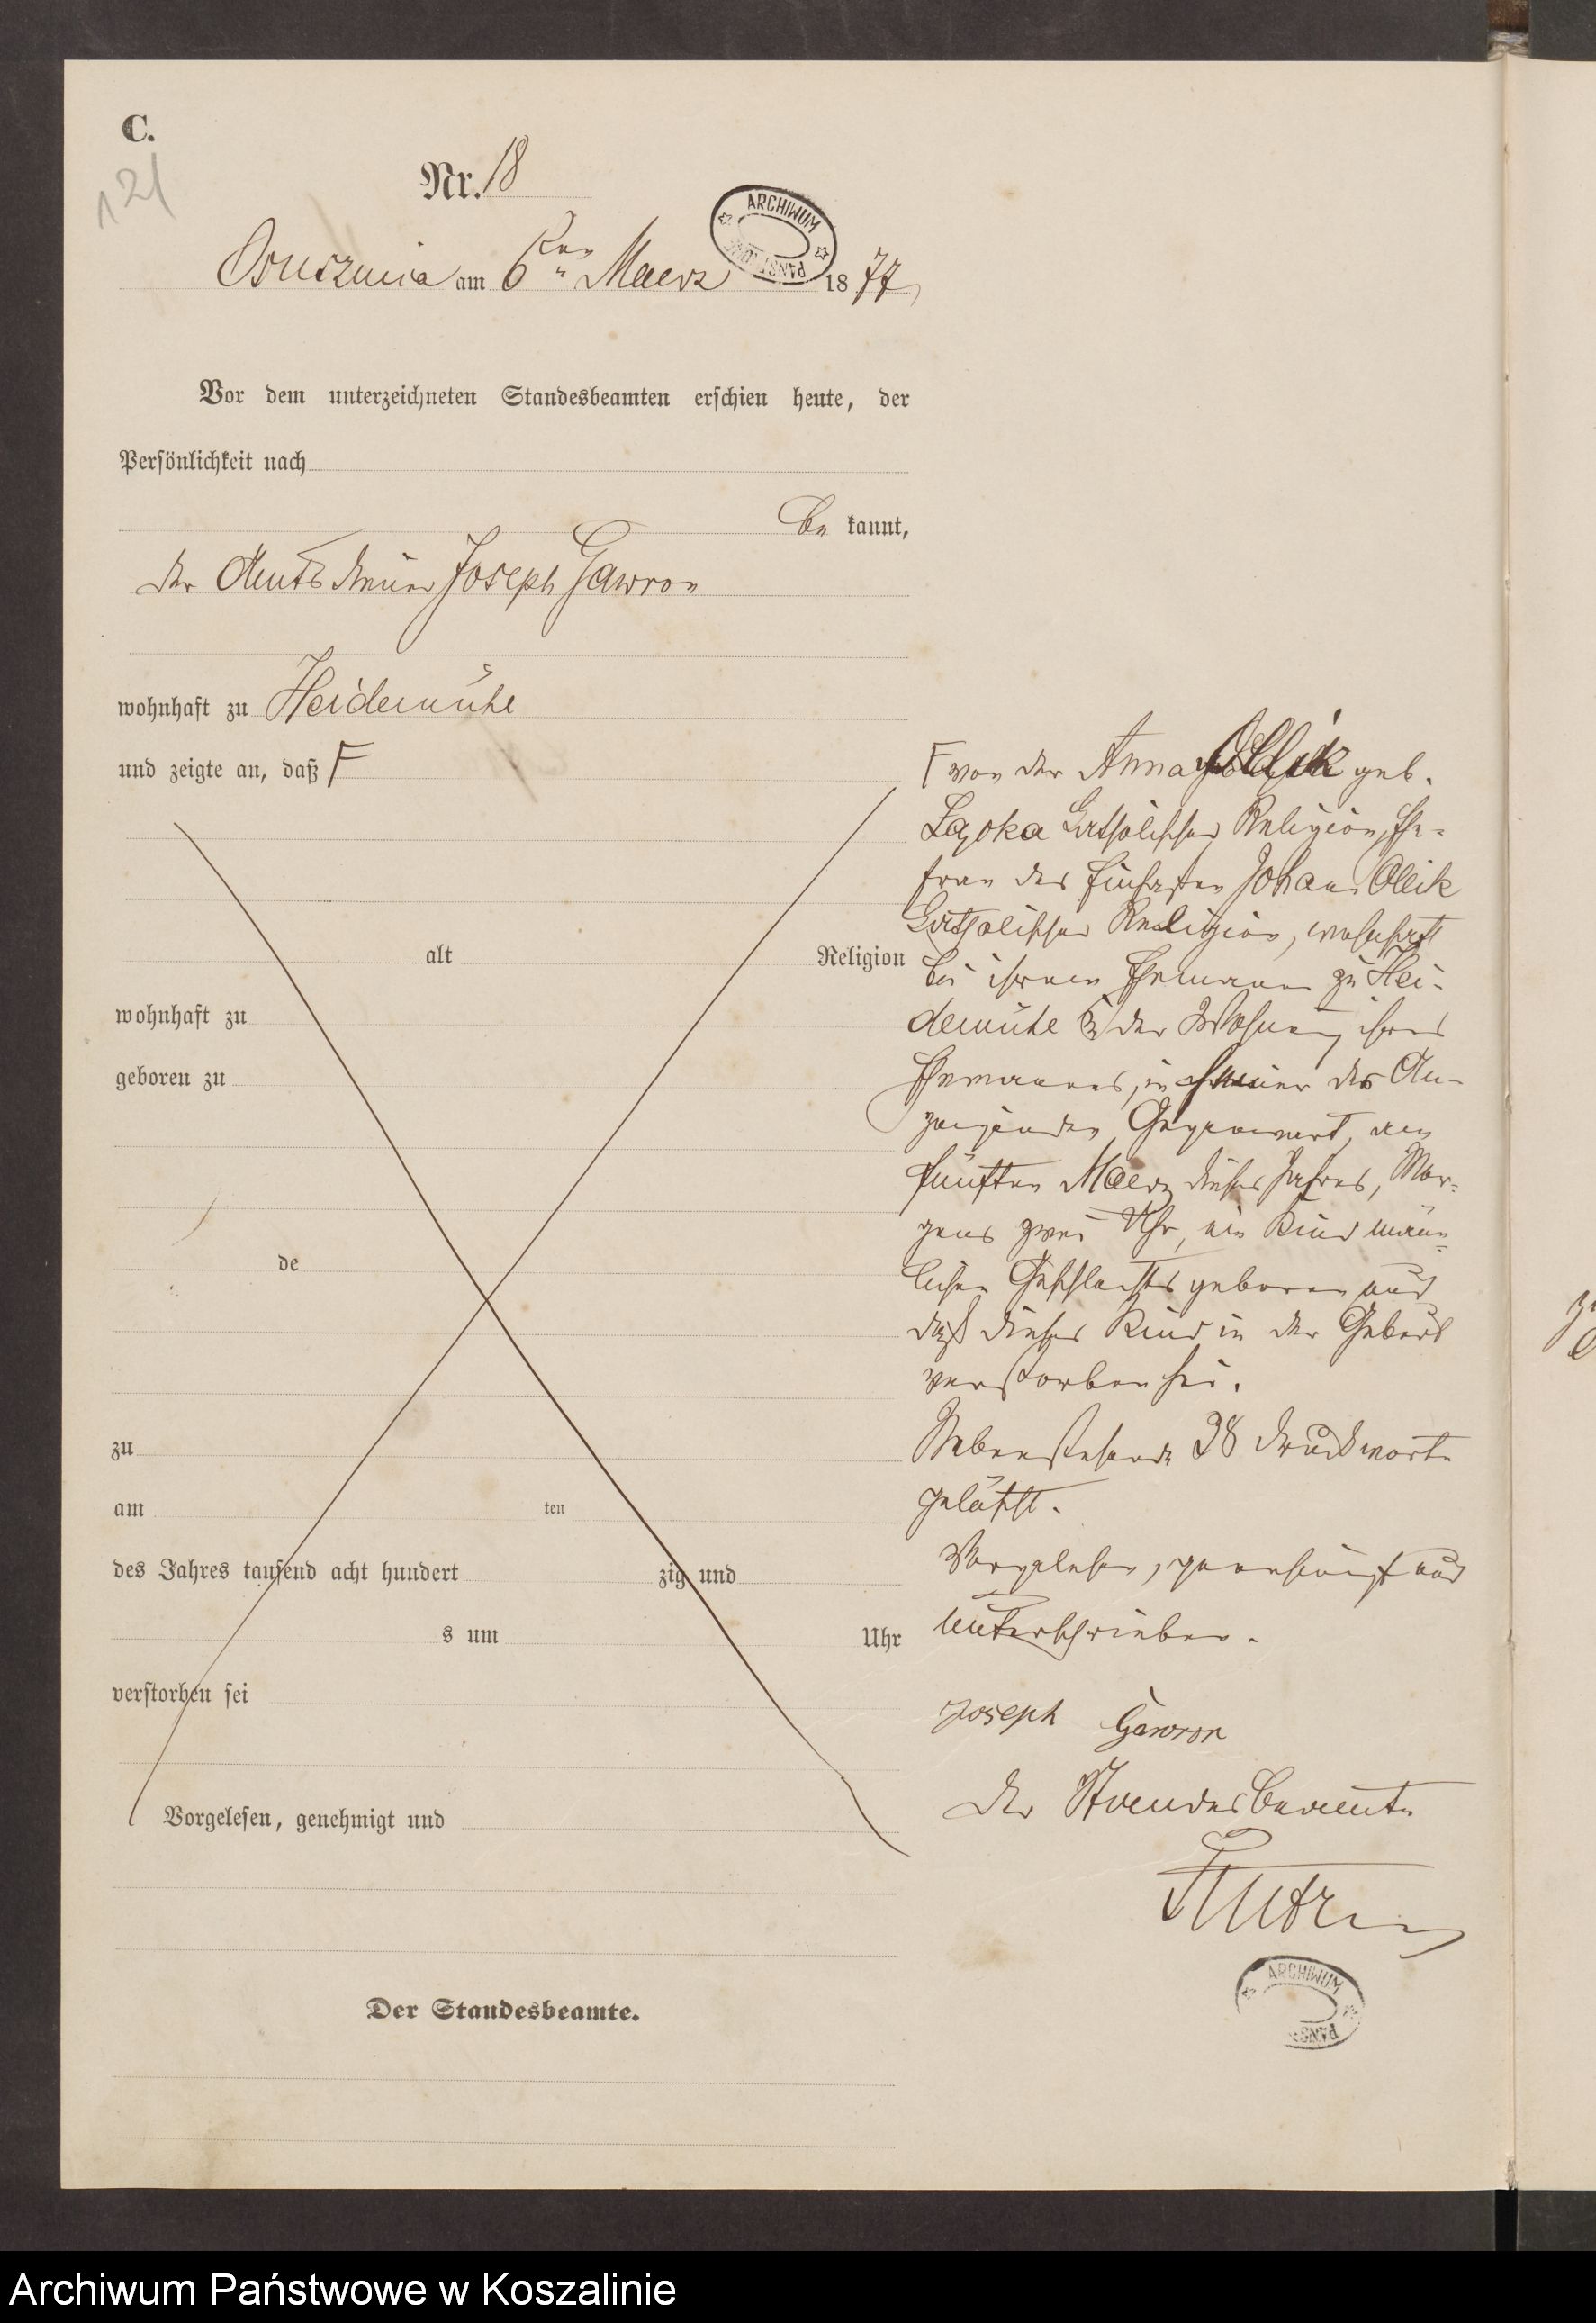 C.
121
Nr. 18
Osuszniea am 6ten Maerz 1877
ARCHIWUM PAŃSTWOWE
Vor dem unterzeichneten Standesbeamten erschien heute, der
Persönlichkeit nach
be kannt,
der Amtsdiener Joseph Gawron
wohnhaft zu Heidemühl
und zeigte an, daß F
alt Religion
wohnhaft zu
geboren zu
de
zu
am ten
des Jahres tausend acht hundert zig und
s um Uhr
verstorben sei
Vorgelesen, genehmigt und
Der Standesbeamte.
F von der Anna Ollik geb.
katholischer Religion, Ehe-
frau des Johann Ollik
katholischer Religion, wohnhaft
bei ihrem Ehemann zu Hei-
demühl in der Wohnung ihres
Ehemannes, in des An-
zeigenden Gegenwart, am
fünften Maerz dieses Jahres, Mor-
gens zwei Uhr, ein Kind männ-
lichen Geschlechts geboren und
daß dieses Kind in der Geburt
verstorben sei.
Nebenstehende 38 Druckworte
gelöscht.
Vorgelesen, genehmigt und
unterschrieben.
Joseph Gawron
Der Standesbeamte
ARCHIWUM PAŃST
Archiwum Państwowe w Koszalinie